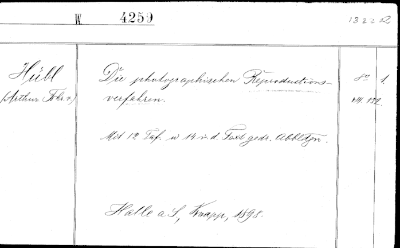 W 4259
Hübl
(Arthur Fhr. v.)
Die photographischen Reproductions-
verfahren.
8° 1.
Mit 12 Taf. u 14 i. d. Text gedr. Abbldgn.
Halle a. S, Knapp, 1898.